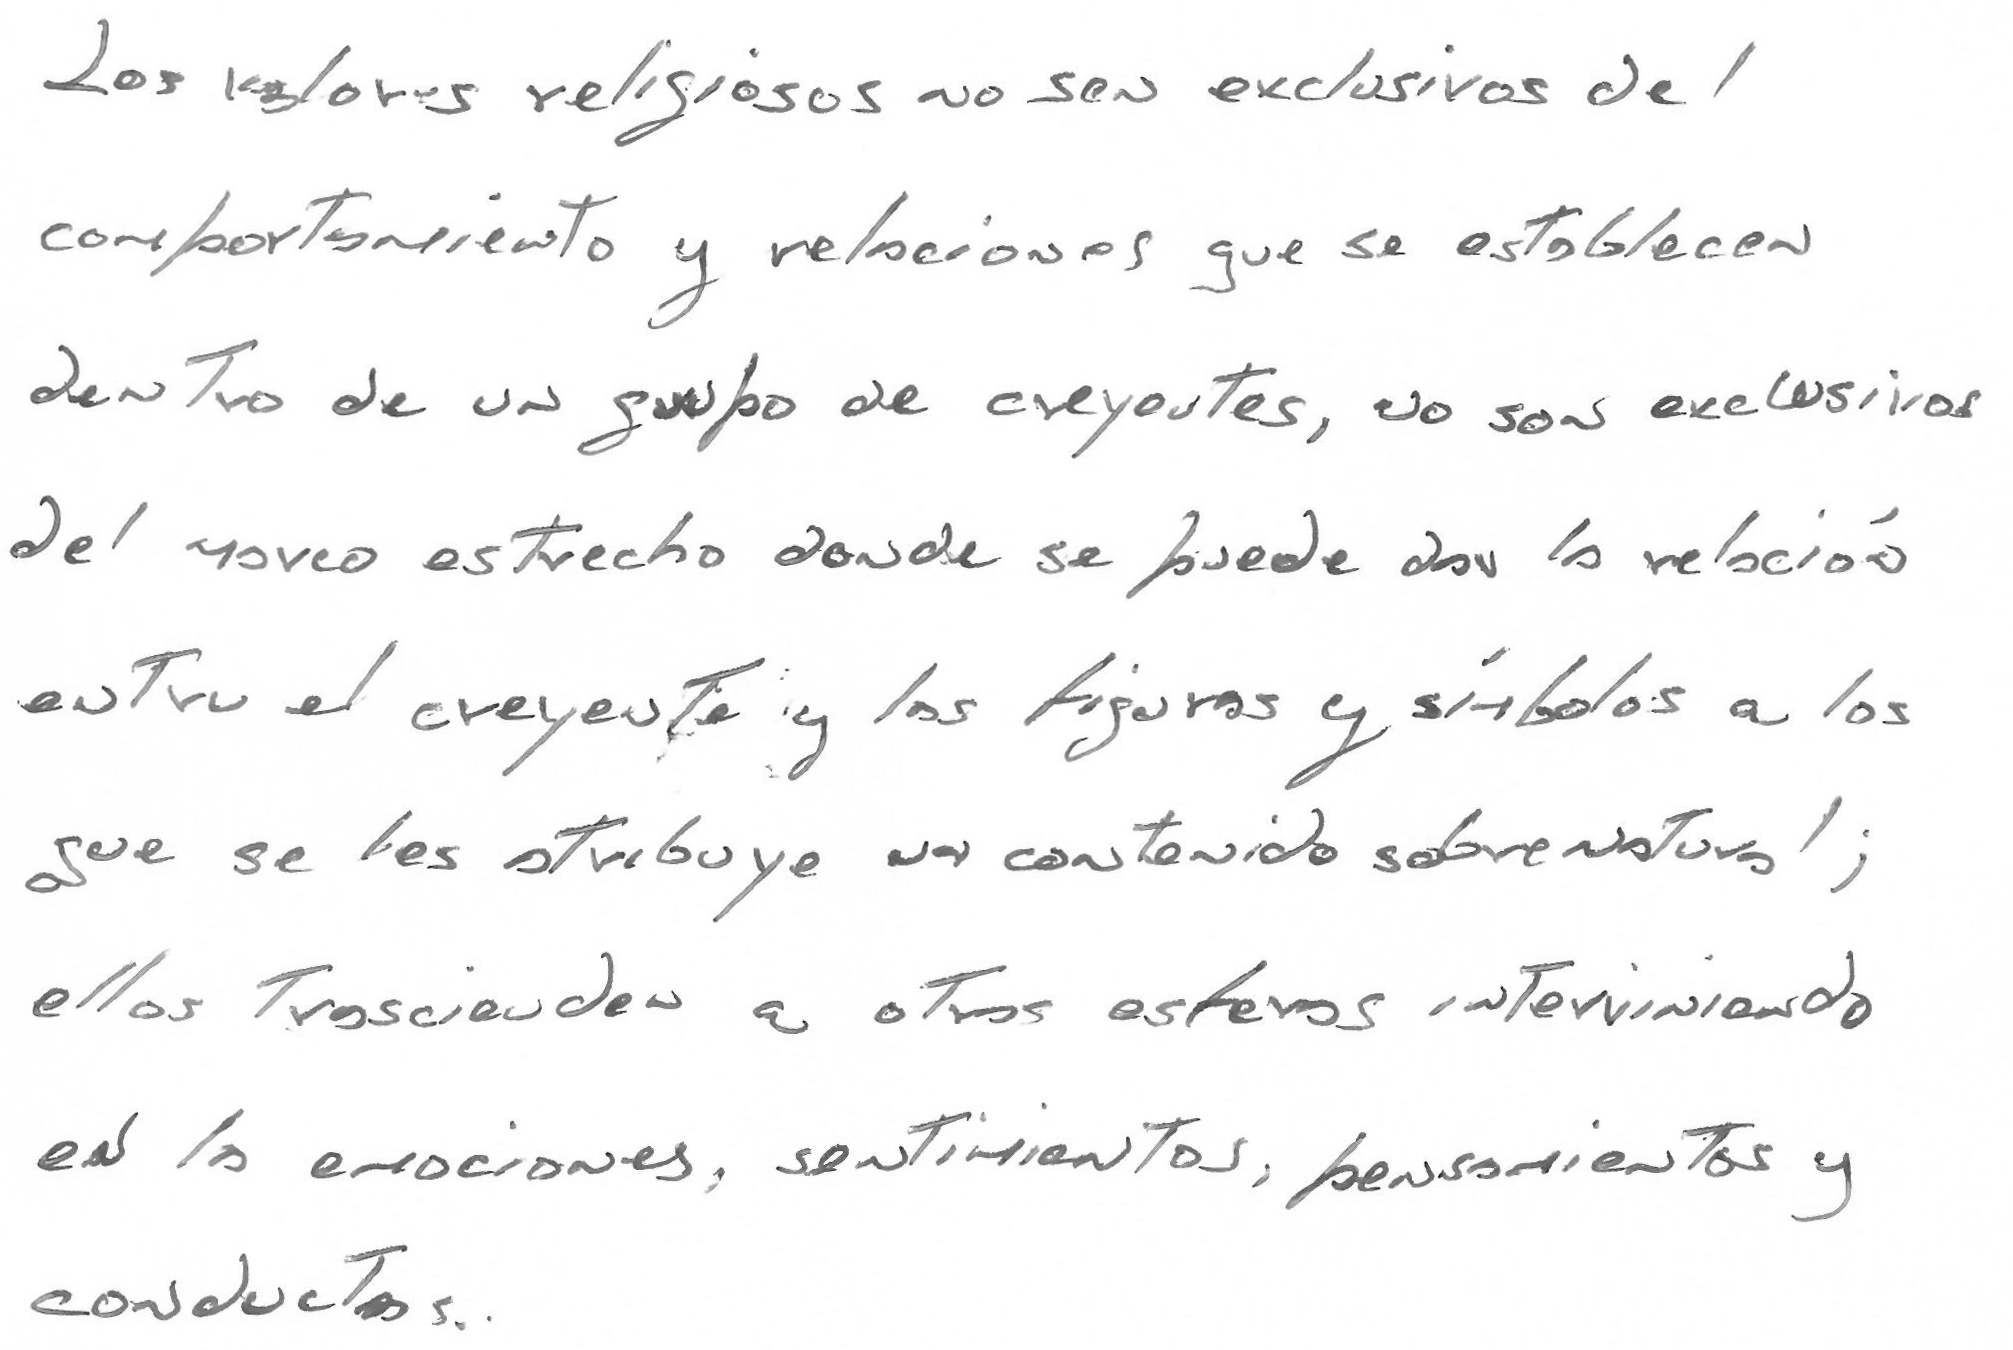 Los valores religiosos no son exclusivos del
comportamiento y relaciones que se establecen
dentro de un grupo de creyentes, no son exclusivos
del marco estrecho donde se puede dar la relación
entre el creyente y las figuras y símbolos a los
que se les atribuye un contenido sobrenatural;
ellos trascienden a otras esferas interviniendo
en la emociones, sentimientos, pensamientos y
conductas.